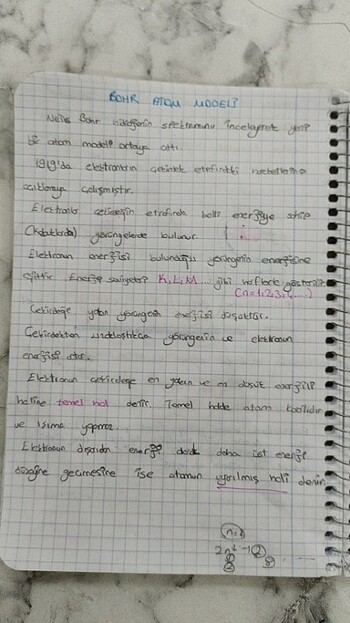 BOHR ATOM MODELİ
Neils Bohr hidrojenin spektrumunu inceleyerek yeni
bir atom modeli ortaya attı.
1913'da elektronların çekirdek etrafındaki hareketlerini
açıklamaya çalışmıştır.
Elektronlar çekirdeğin etrafında belli enerjiye sahip
(Katmanlarda) yörüngelerde bulunur.
Elektronun enerjisi bulunduğu yörüngenin enerjisine
eşittir. Enerji seviyeleri K, L, M ... gibi harflerle gösterilir
(n=1,2,3,4,...)
Çekirdeğe yakın yörüngenin enerjisi düşüktür.
Çekirdekten uzaklaştıkça yörüngenin ve elektronun
enerjisi artar.
Elektronun çekirdeğe en yakın ve en düşük enerjili
haline temel hal denir. Temel halde atom kararlıdır
ve ışıma yapmaz.
Elektronun dışarıdan enerji alarak daha üst enerji
düzeyine geçmesine ise atomun uyarılmış hali denir.
2n²